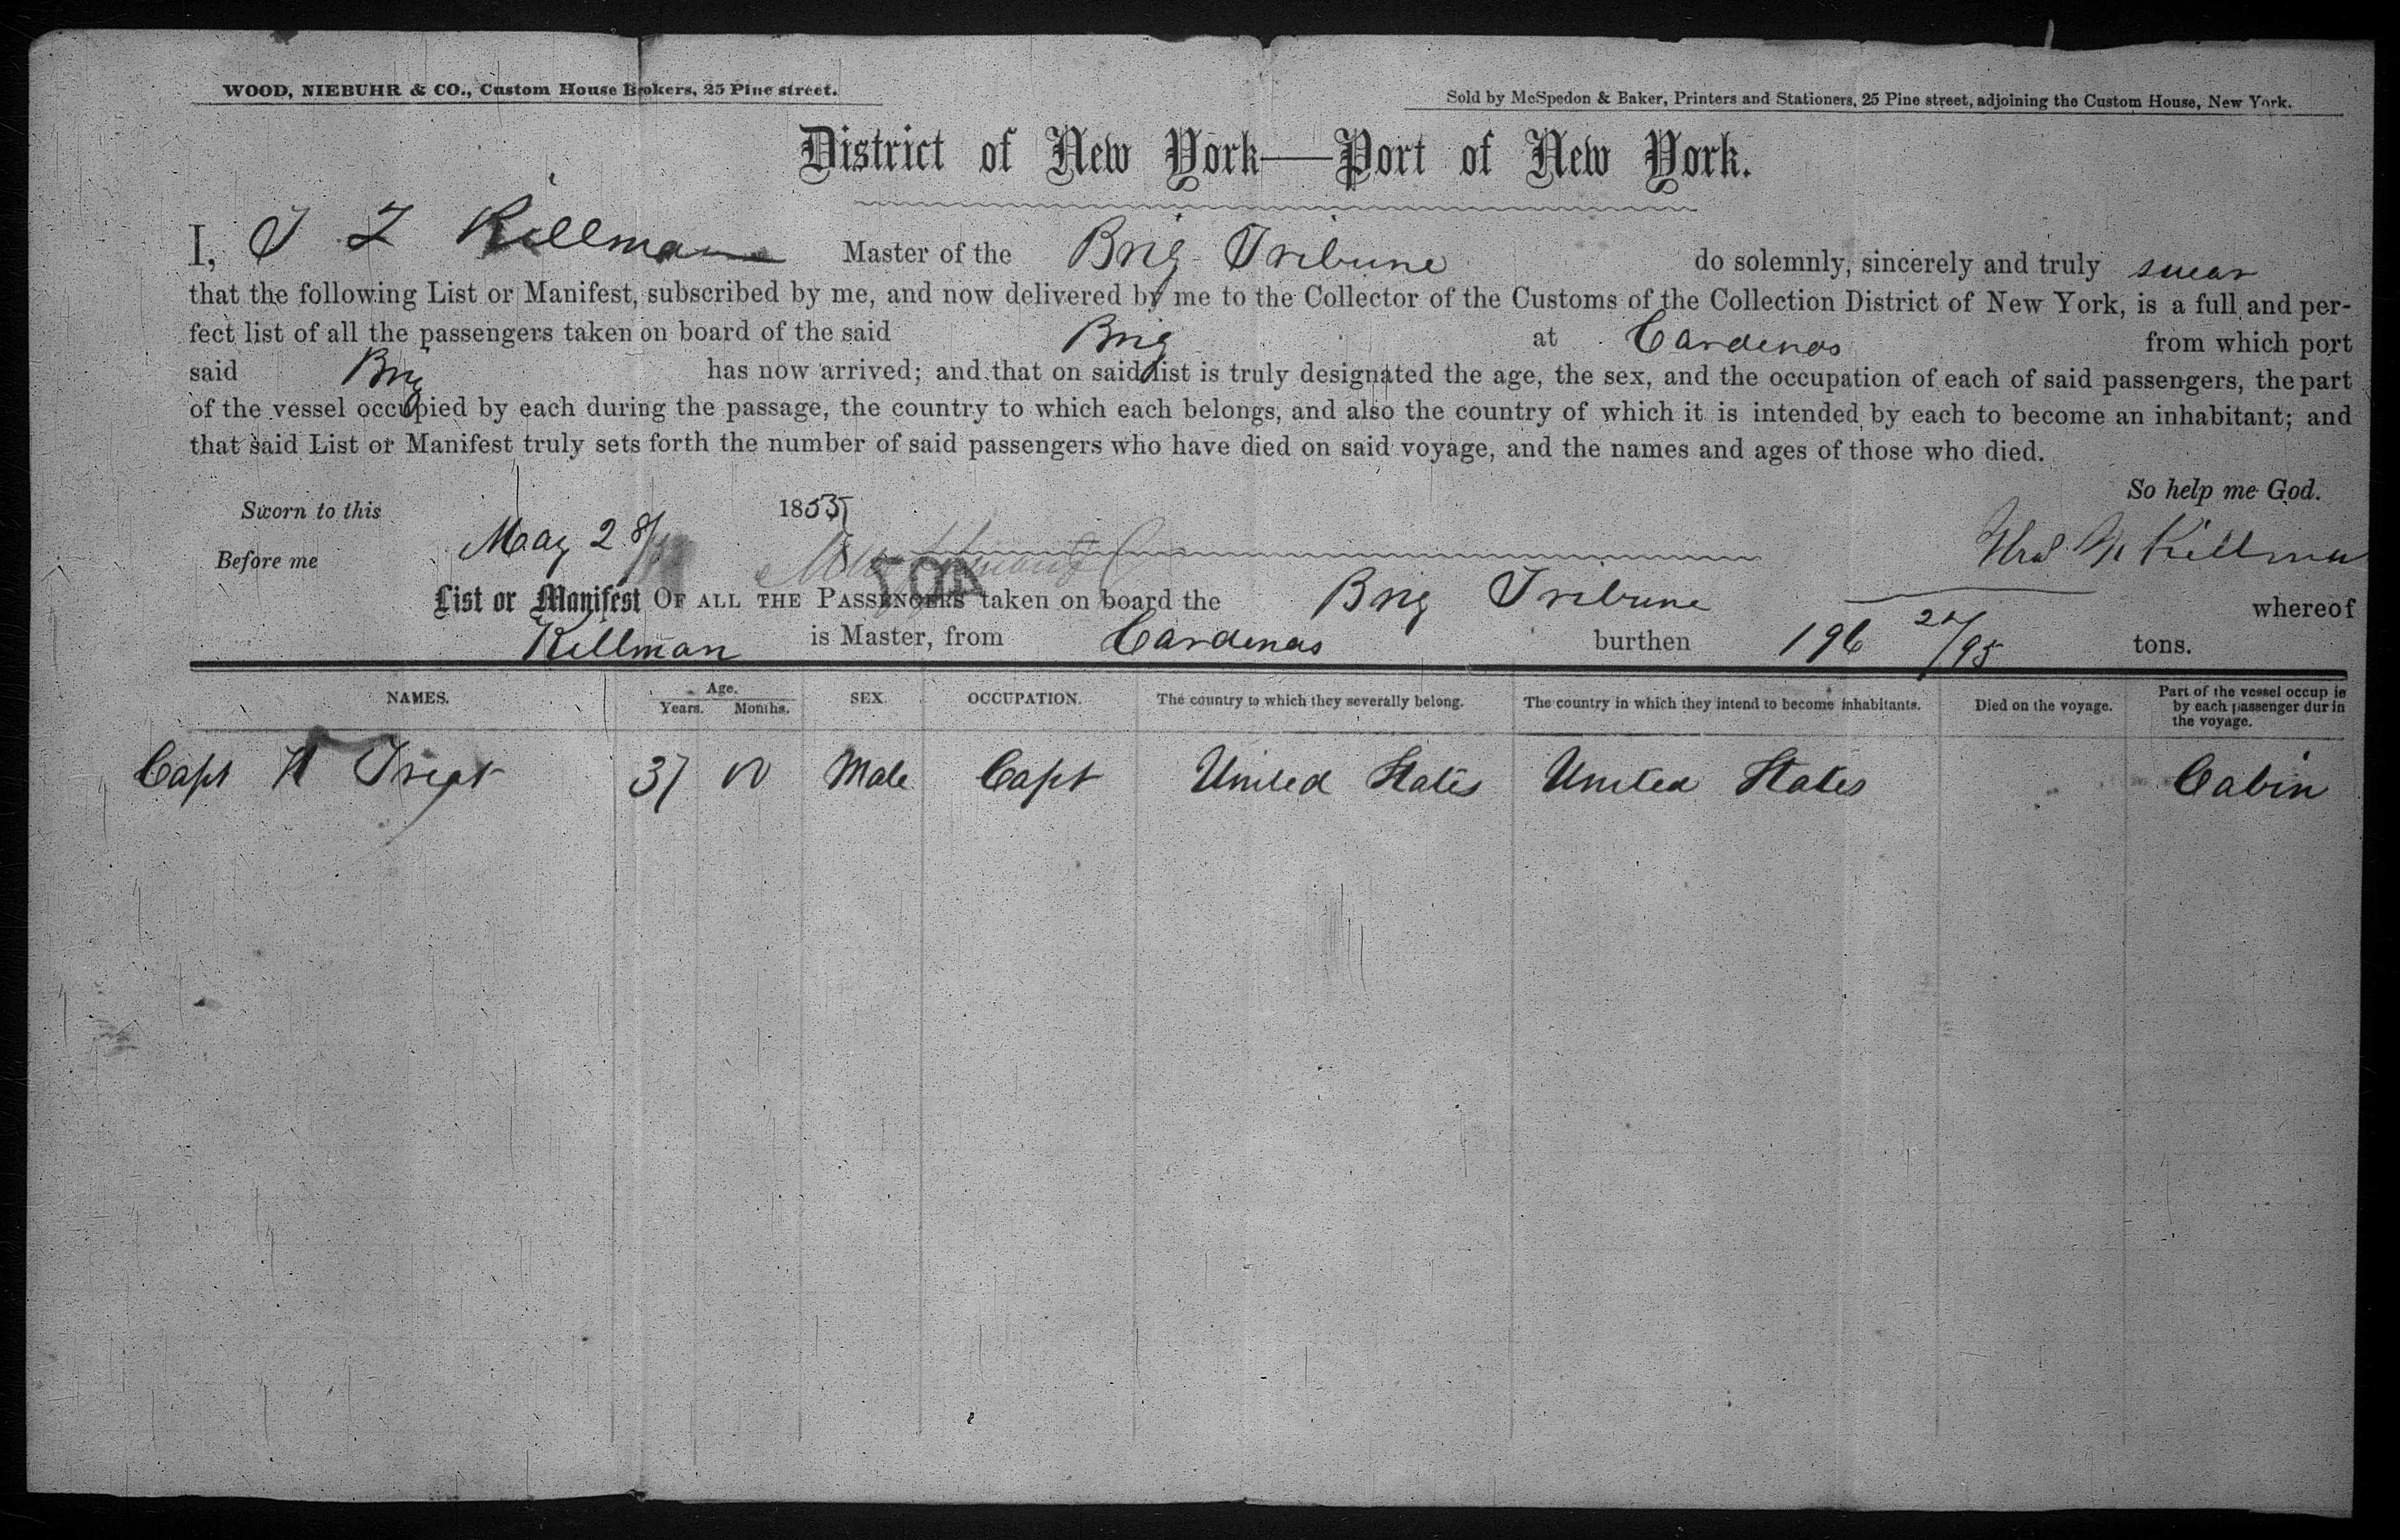 WOOD, NIEBUHR & CO., Custom House Brokers, 25 Pine street.
Sold by McSpedon & Baker, Printers and Stationers, 25 Pine street, adjoining the Custom House, New York.
District of New York—Port of New York.
I, T L Killman Master of the Brig Tribune do solemnly, sincerely and truly swear
that the following List or Manifest, subscribed by me, and now delivered by me to the Collector of the Customs of the Collection District of New York, is a full and per-
fect list of all the passengers taken on board of the said Brig at Cardenas from which port
said Brig has now arrived; and that on said list is truly designated the age, the sex, and the occupation of each of said passengers, the part
of the vessel occupied by each during the passage, the country to which each belongs, and also the country of which it is intended by each to become an inhabitant; and
that said List or Manifest truly sets forth the number of said passengers who have died on said voyage, and the names and ages of those who died.
So help me God.
Sworn to this May 28/ 1855
Before me Killman
List or Manifest OF ALL THE PASSENGERS taken on board the Brig Tribune whereof
Killman is Master, from Cardenas burthen 196 /95 tons.
NAMES. Age. Years. Months. SEX. OCCUPATION. The country to which they severally belong. The country in which they intend to become inhabitants. Died on the voyage. Part of the vessel occup ie by each passenger dur in the voyage.
Capt Treat 37 Male Capt United States United States Cabin